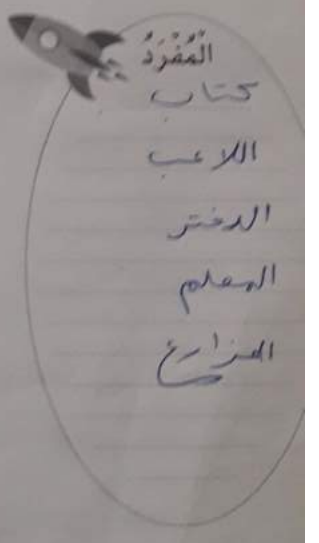 الْمُفْرَدُ
كتاب
اللاعب
الدفتر
المعلم
المزارع